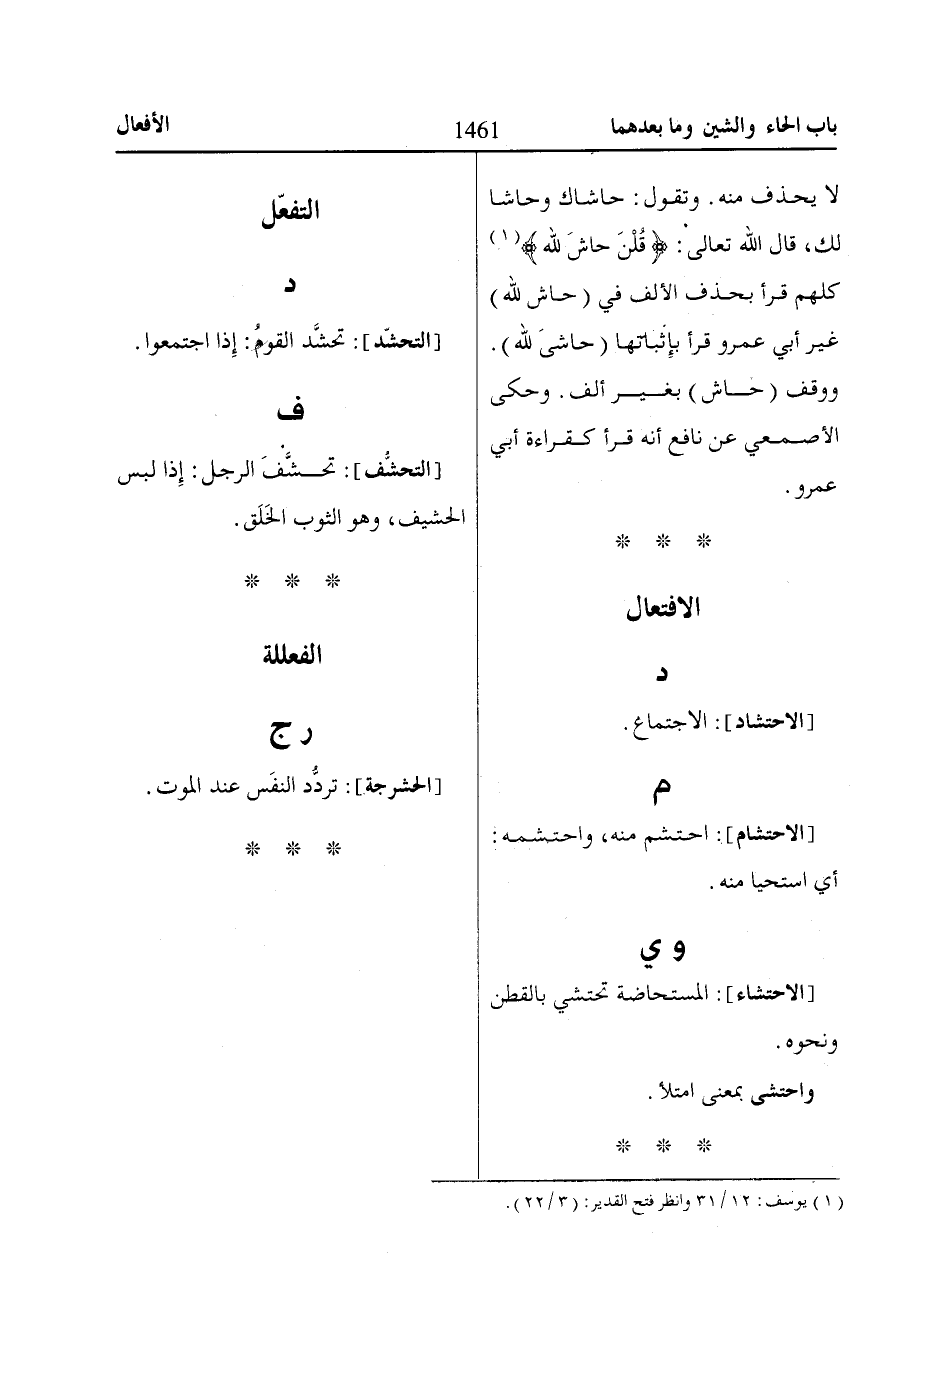 باب الحاء والشين وما بعدهما
1461
الأفعال
لا يحذف منه. وتقول: حاشاك وحاشا
لك، قال الله تعالى: ﴿ قُلْنَ حاشَ لله ﴾(١)
كلهم قرأ بحذف الألف في (حاش لله)
غير أبي عمرو قرأ بإثباتها (حاشىَ لله).
ووقف (حاش) بغير ألف. وحكى
الأصمعي عن نافع أنه قرأ كقراءة أبي
عمرو.
* * *
الافتعال
د
[الاحتشاد]: الاجتماع.
م
[الاحتشام]: احتشم منه، واحتشمه:
أي استحيا منه.
و ي
[الاحتشاء]: المستحاضة تحتشي بالقطن
ونحوه.
واحتشى بمعنى امتلأ.
* * *
التفعّل
د
[التحشّد]: تحشَّد القومُ: إذا اجتمعوا.
ف
[التحشُّف]: تحشَّفَ الرجل: إذا لبس
الحشيف، وهو الثوب الخَلَق.
* * *
الفعللة
ر ج
[الحشرجة]: تردُّد النفَس عند الموت.
* * *
(١) يوسف: ١٢/ ٣١ وانظر فتح القدير: (٣/ ٢٢).